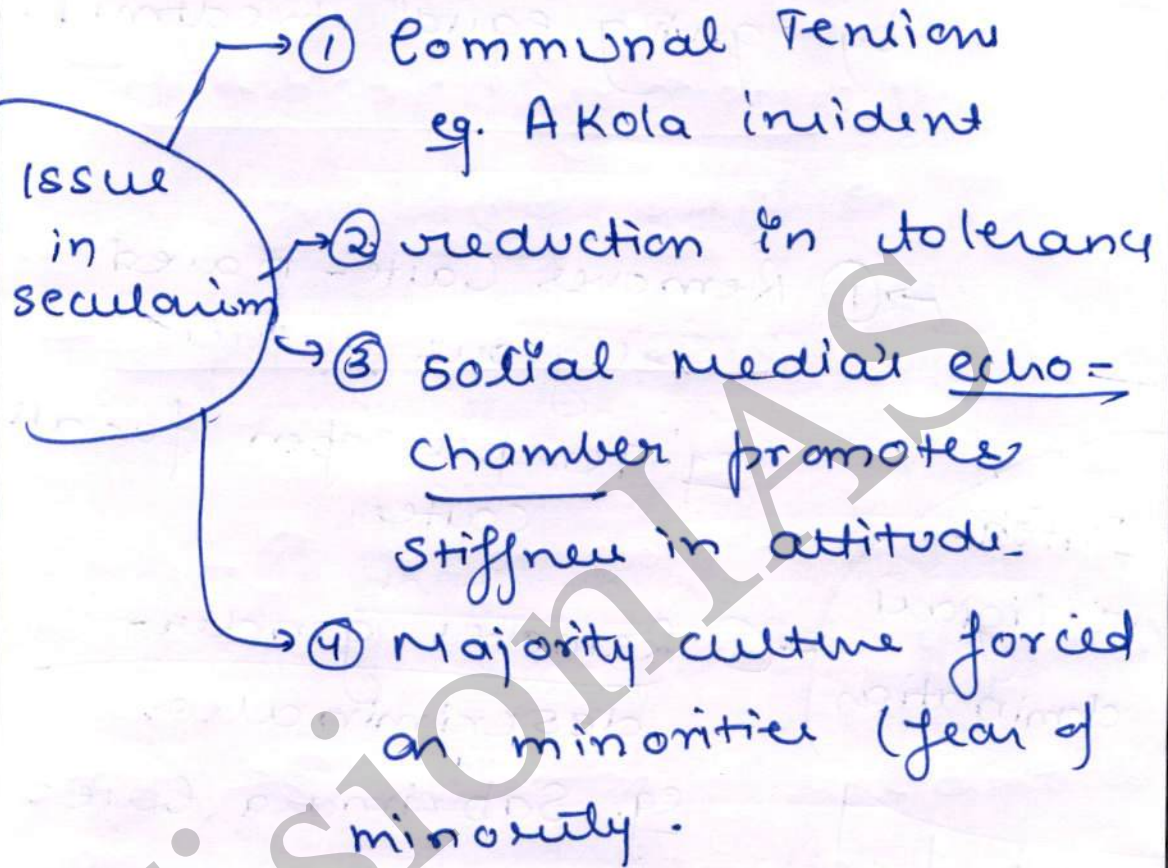 Issue
in
secularism
① Communal Tensions
eg. AKola incident
② reduction in tolerance
③ social media's echo-
chamber promotes
stiffness in attitude.
④ Majority culture forced
on minorities (fear of
minority.
VisionIAS